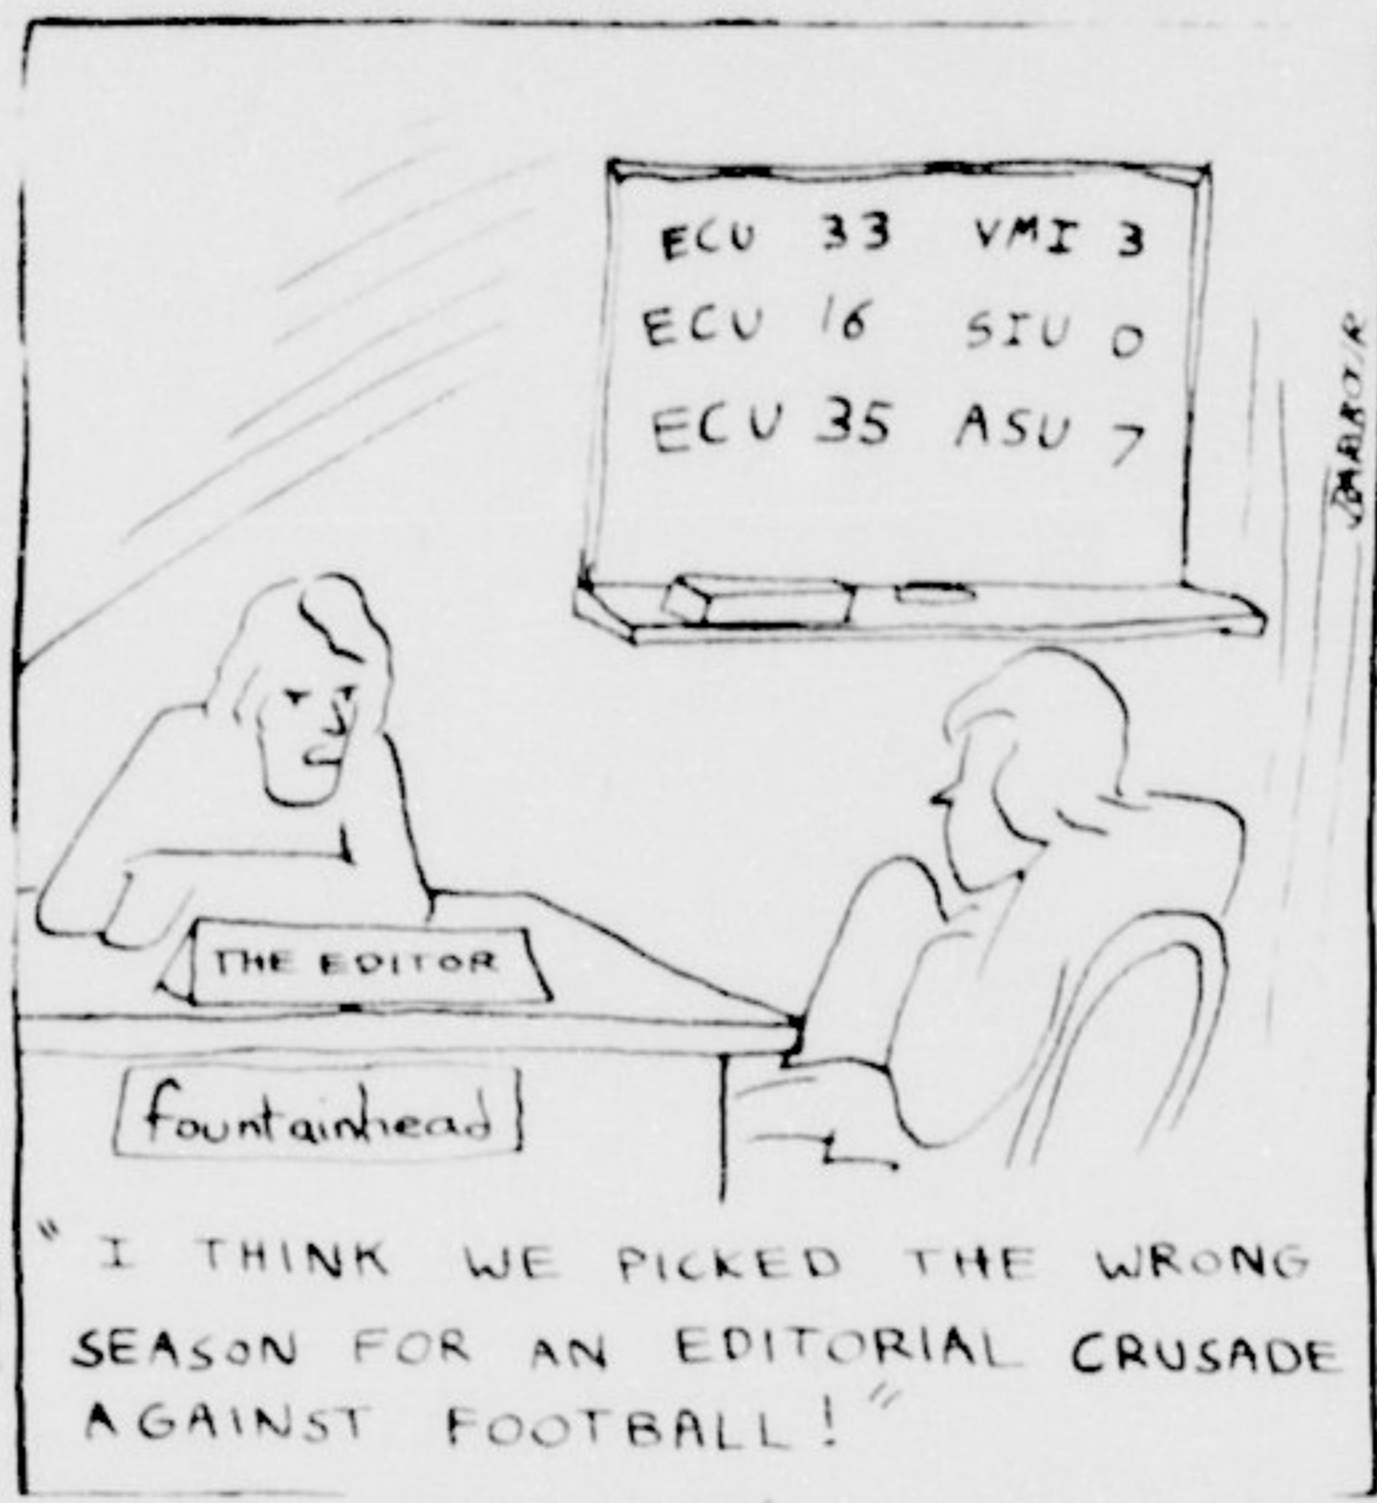 ECU 33 VMI 3
ECU 16 SIU 0
ECU 35 ASU 7
THE EDITOR
fountainhead
"I THINK WE PICKED THE WRONG
SEASON FOR AN EDITORIAL CRUSADE
AGAINST FOOTBALL!"